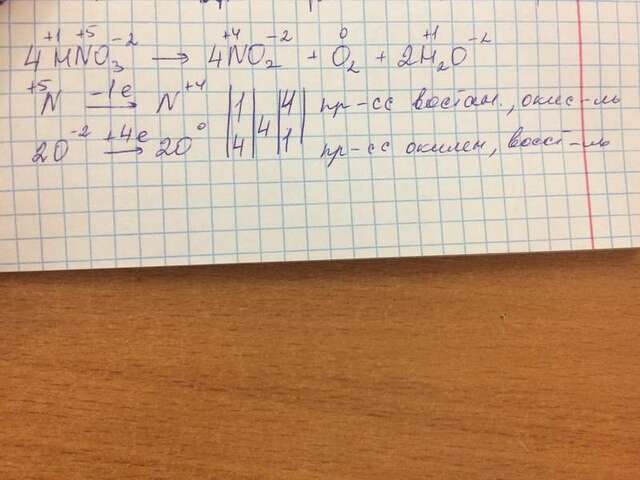 4H⁺¹N⁺⁵O₃⁻² → 4N⁺⁴O₂⁻² + O₂⁰ + 2H₂⁺¹O⁻²
⁺⁵N −1e → N⁺⁴ | 1 | | 4 | пр-сс востан., окис-ль
2O⁻² +4e → 2O⁰ | 4 | 4 | 1 | пр-сс окилен, восст-ль